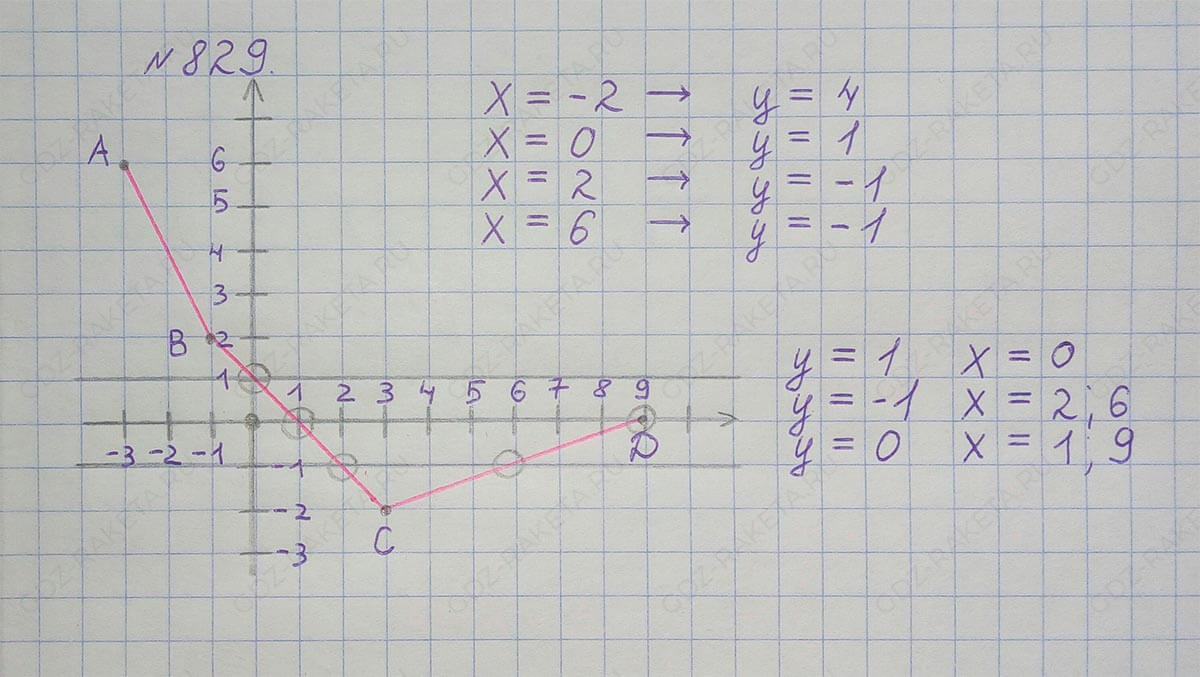 №829.
x = -2 → y = 4
x = 0 → y = 1
x = 2 → y = -1
x = 6 → y = -1
y = 1 x = 0
y = -1 x = 2; 6
y = 0 x = 1; 9
A
6
5
4
3
B 2
1
1 2 3 4 5 6 7 8 9
-3 -2 -1
D
-1
-2
C
-3
GDZ-RAKETA.RU